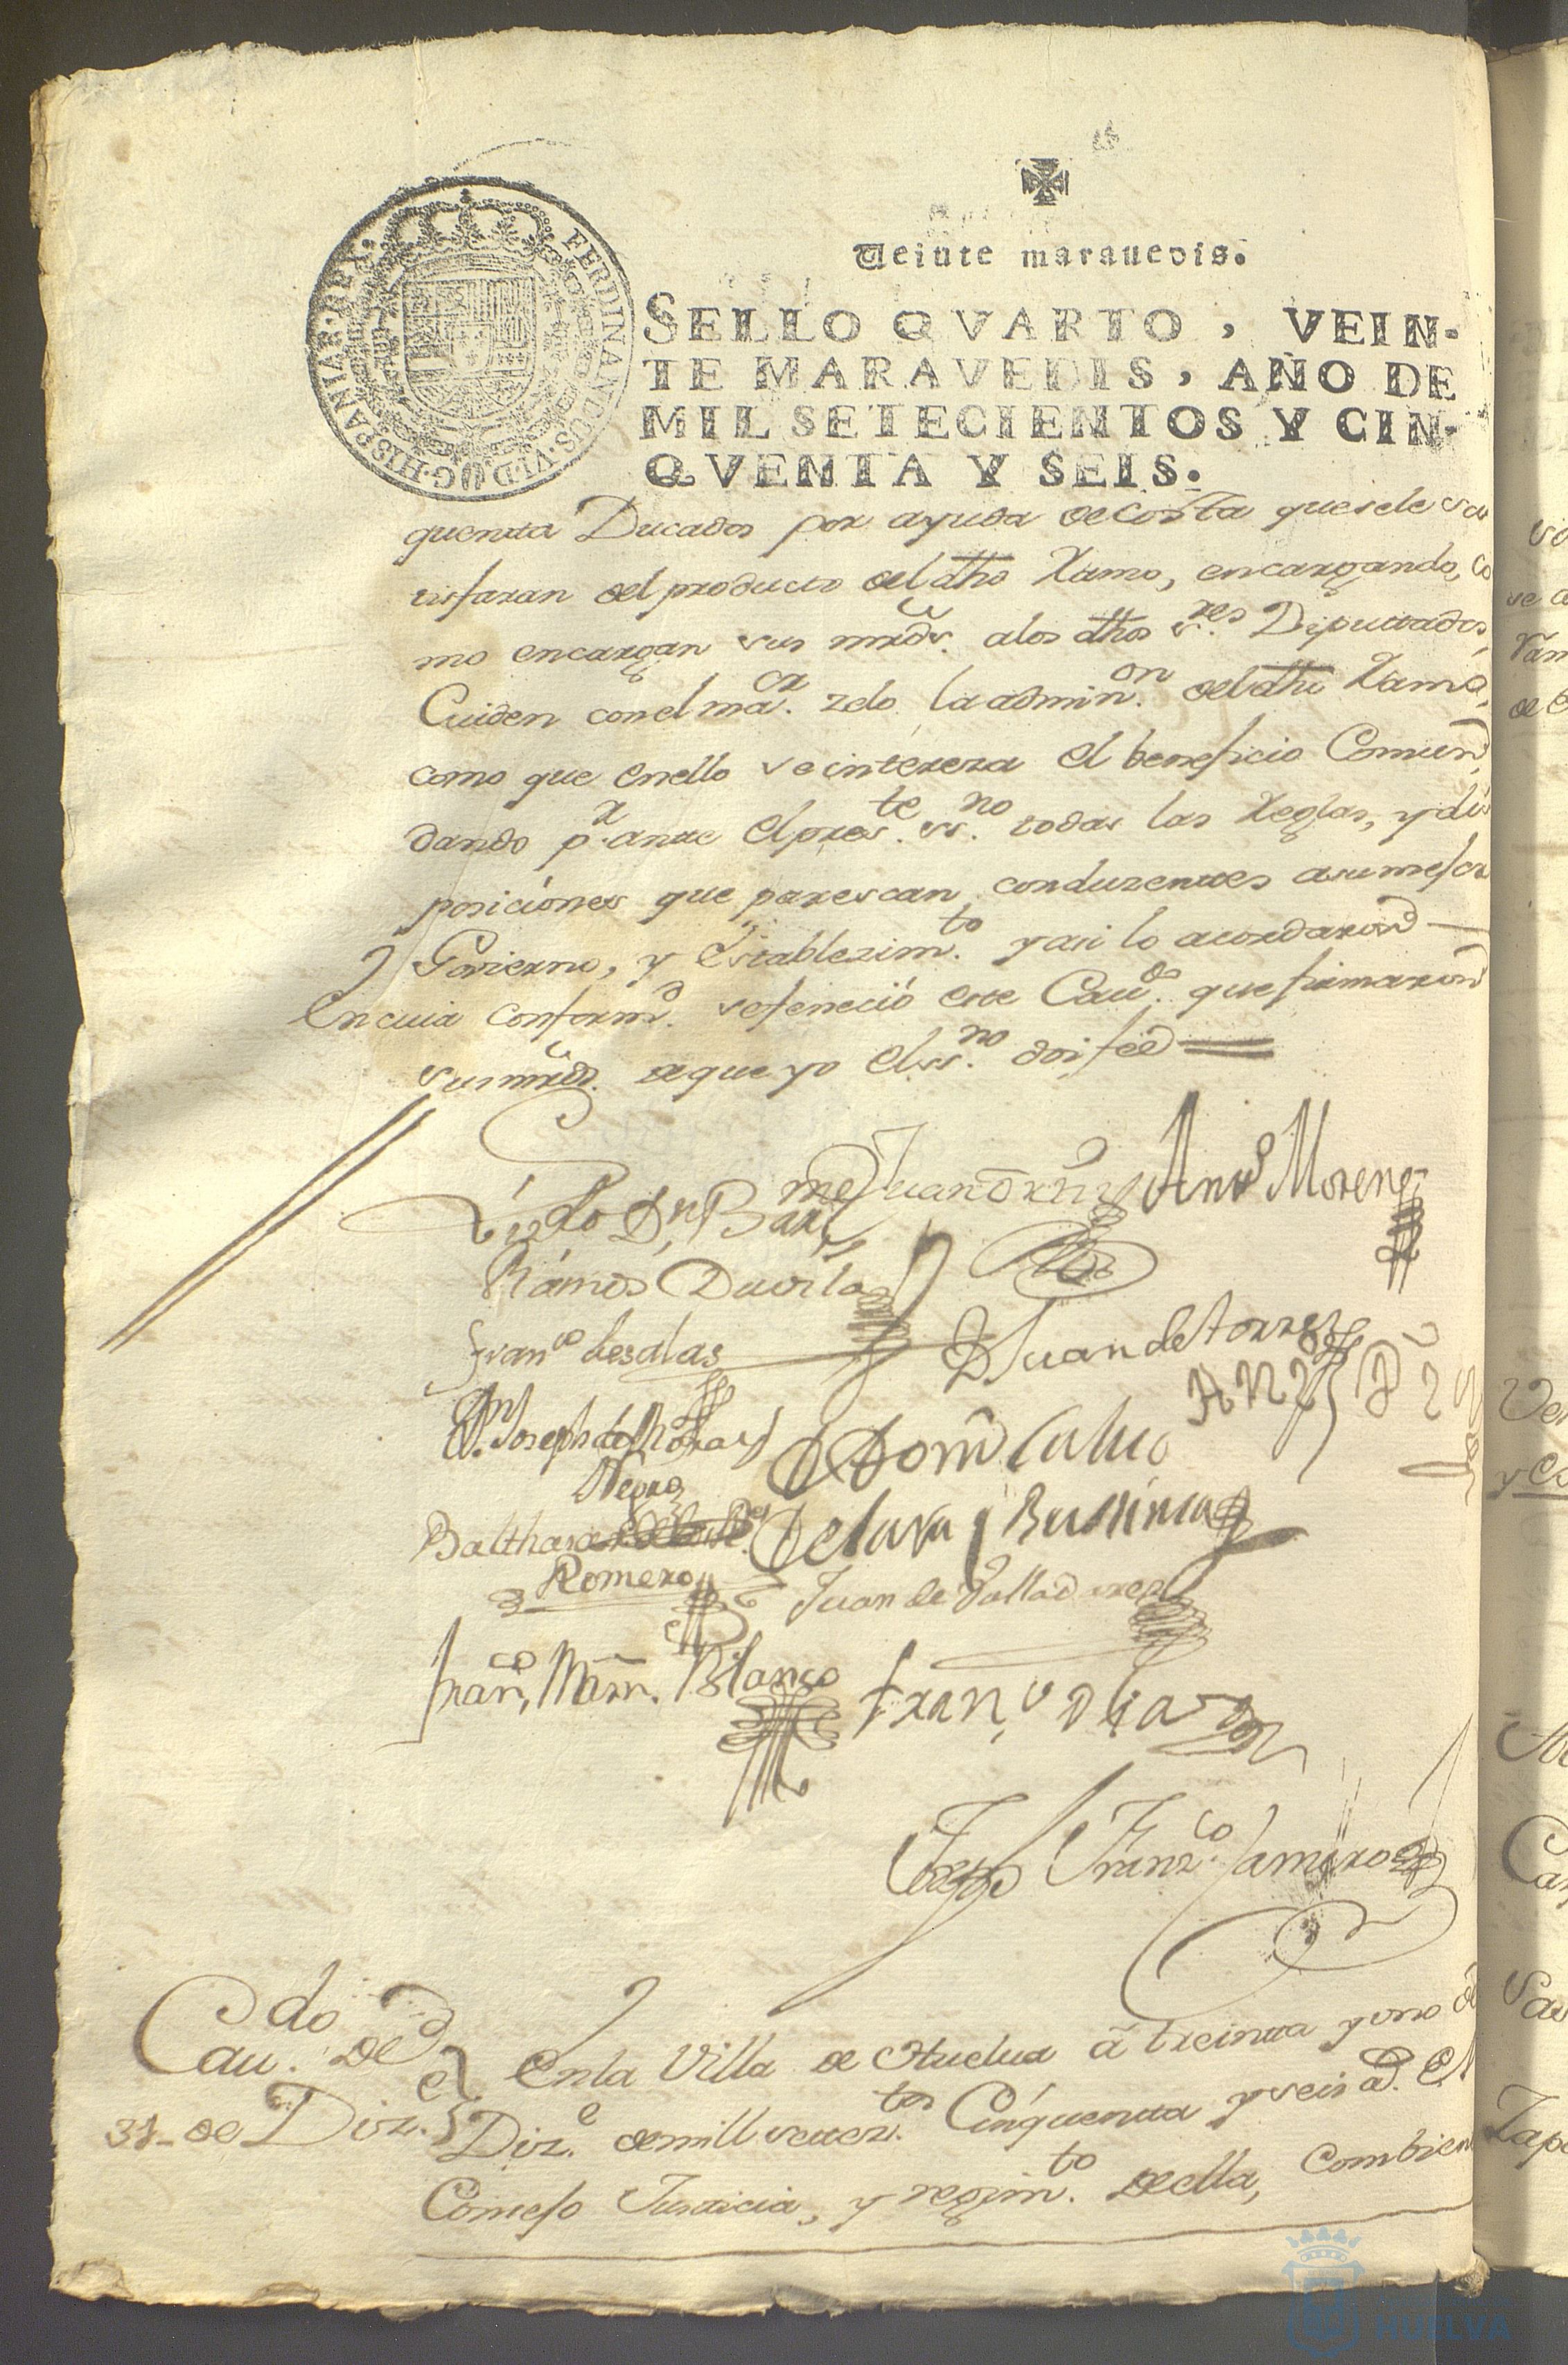 FERDINANDUS·VI·D·G·HISPANIAR·REX·
Veinte marauedis.
SELLO QVARTO, VEIN-
TE MARAVEDIS, AÑO DE
MIL SETECIENTOS Y CIN-
QVENTA Y SEIS.
quenta Ducados por ayuda de Costa que se le sa
tisfaran del producto del dho Ramo, encargando, co
mo encargan sus mrds. a los dhos s.res Diputados,
Cuiden con el ma.or zelo la admin.on del dho Ramo,
como que en ello se intereza el beneficio Comun,
dando p.r ante el pres.te ss.no todas las Reglas, y dis
posiciónes que parescan conduzentes a su mejor
Govierno, y Establezim.to y asi lo acordaron
En cuia conform.d se feneció este Cau.do que firmaron
sus mrds. de que yo el ss.no doi fee
Lizdo Dn Bar.me
Ramos Davila
Juan
Anto Moreno
Fran.co de Salas
D Juan de torres
Dn. Joseph de
Negro
Balthasar
Romero
Juan de Valladares
Fran.co Mrn. Blanco
Fran.co Diaz
Joseph Franz.co
Cau.do de
31- de Diz.e
En la Villa de Huelua á treinta y uno de
Diz.e de mill setez.tos Cinquenta y seis a.s El
Consejo Justicia, y regim.to de ella, combien
HUELVA